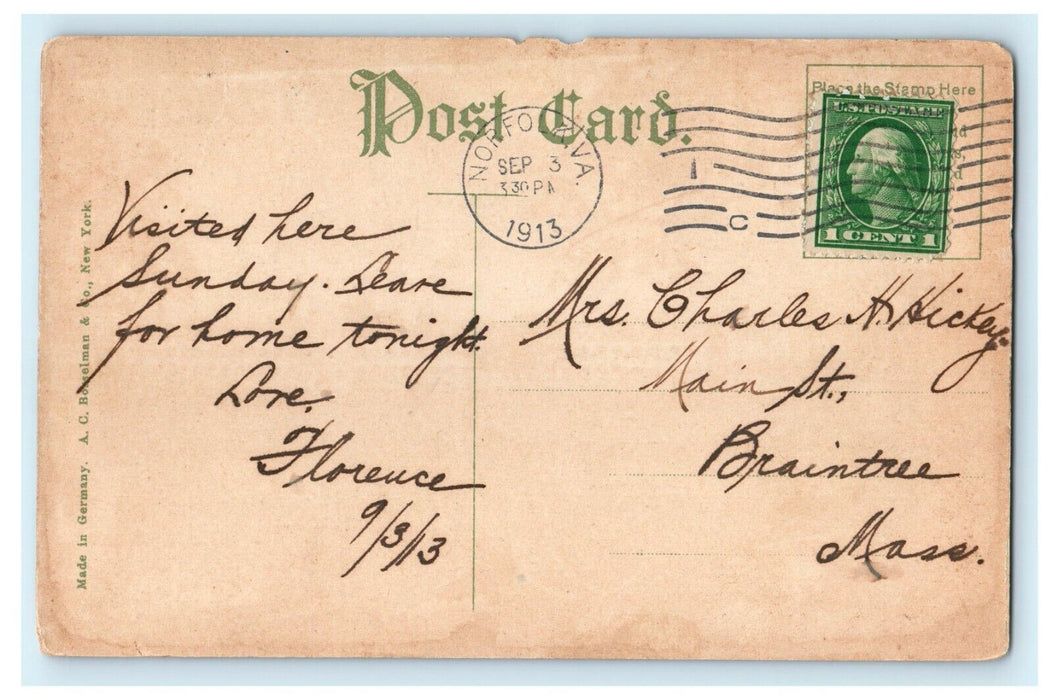 Post Card.
Place the Stamp Here
U.S. POSTAGE
1 CENT 1
NORFOLK, VA.
SEP 3
3 30 PM
1913
1
C
Visited here
Sunday. Leave
for home tonight.
Love.
Florence
9/3/13
Mrs. Charles H. Hickey.
Main St.,
Braintree
Mass.
Made in Germany. A. C. Bosselman & Co., New York.